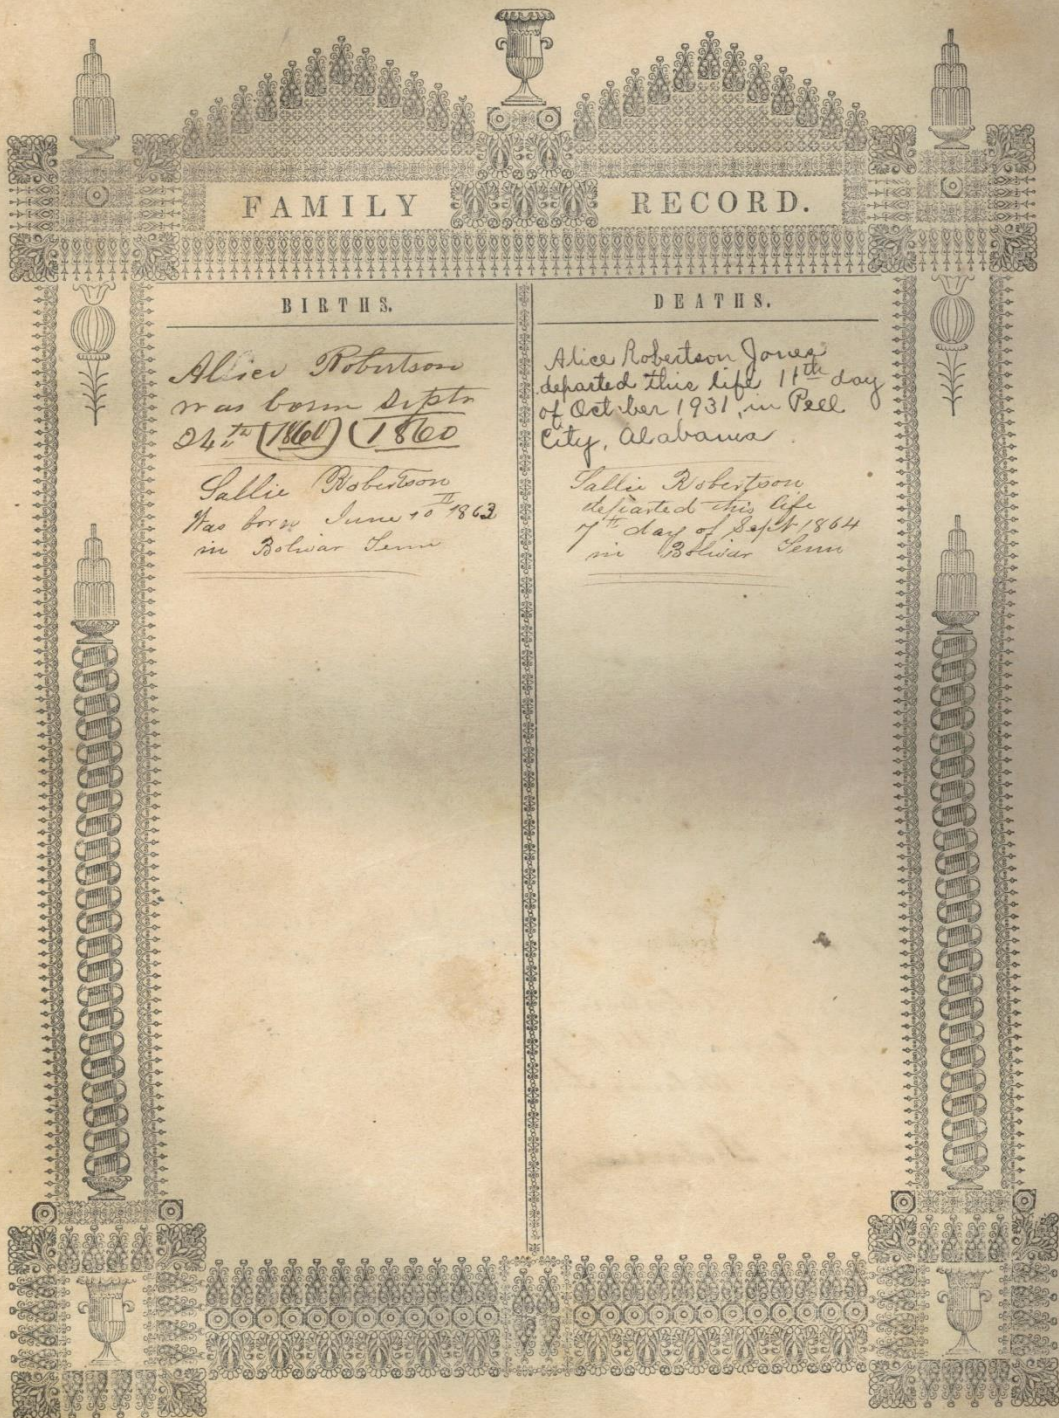 FAMILY RECORD.
BIRTHS.
Alice Robertson
was born Septr
24th (1860) (1860
Sallie Robertson
Was born June 10th 1863
in Bolivar Tenn
DEATHS.
Alice Robertson Jones
departed this life 11th day
of October 1931, in Pell
City, Alabama
Sallie Robertson
departed this life
7th day of Sept 1864
in Bolivar Tenn